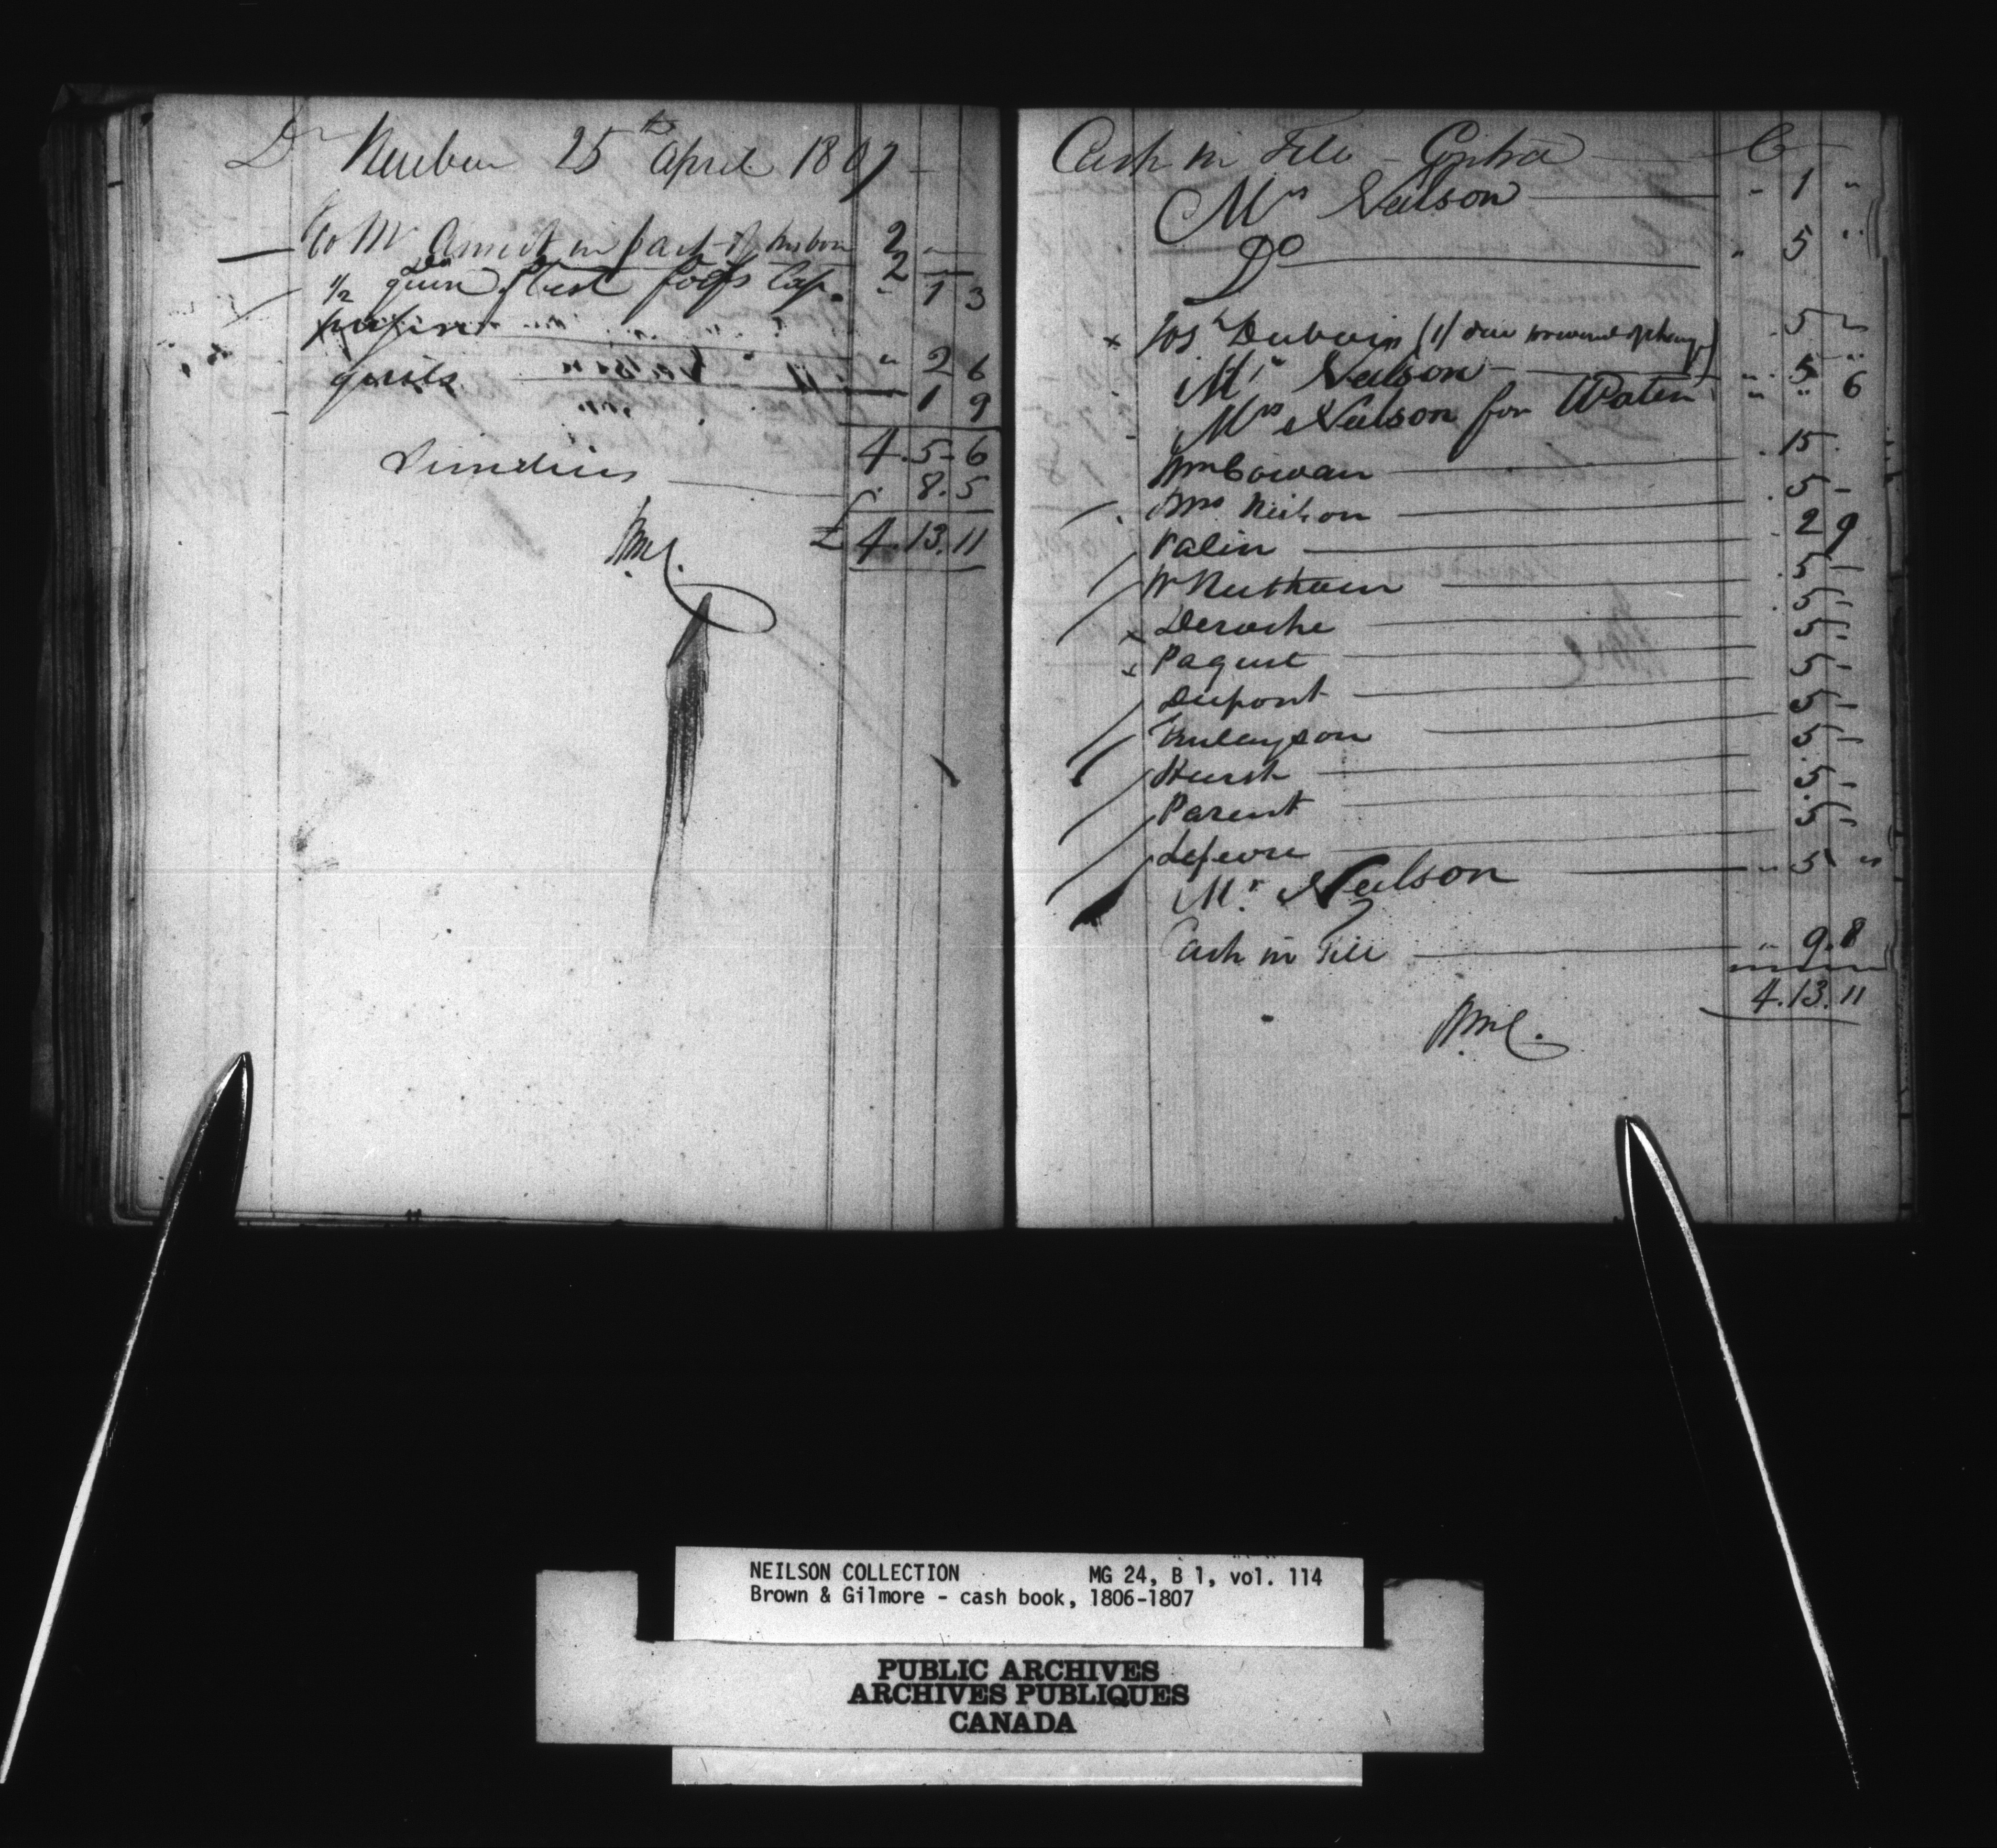 Dr Quebec 25th April 1807
To Mr Amiot in part of his bon 2 " -
Do 2 - -
1/2 quire best fools Cap. " 1 3
" 2 6
quills 1 9
4.5-6
Sundries 8.5
£4.13.11
WmC.
Cash in Till - Contra Cr
Mrs Neilson " 1 "
Do " 5 "
x Josh Dubois (1/ due 5
Mr Neilson " 5 "
Mrs Neilson for Water " " 6
Wm Cowan 15
Mrs Neilson 5 -
Valin 2 9
W 5 -
Deroche 5 -
Paquet 5 -
Dupont 5 -
Finlayson 5 -
Hurst 5 -
Parent 5 -
Lefevre 5 -
Mr. Neilson " 5 "
Cash in Till " 9.8
4.13.11
WmC.
NEILSON COLLECTION MG 24, B 1, vol. 114
Brown & Gilmore - cash book, 1806-1807
PUBLIC ARCHIVES
ARCHIVES PUBLIQUES
CANADA